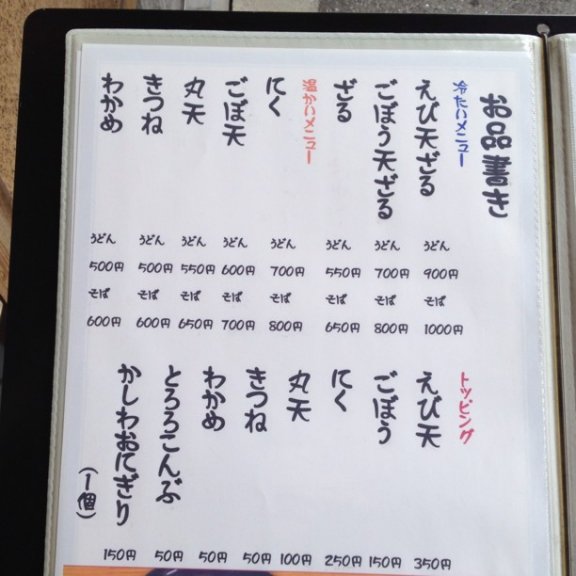 お品書き
冷たいメニュー
えび天ざる うどん 900円 そば 1000円
ごぼう天ざる うどん 700円 そば 800円
ざる うどん 550円 そば 650円
温かいメニュー
にく うどん 700円 そば 800円
ごぼ天 うどん 600円 そば 700円
丸天 うどん 550円 そば 650円
きつね うどん 500円 そば 600円
わかめ うどん 500円 そば 600円
トッピング
えび天 350円
ごぼう 150円
にく 250円
丸天 100円
きつね 50円
わかめ 50円
とろろこんぶ 50円
かしわおにぎり (1個) 150円